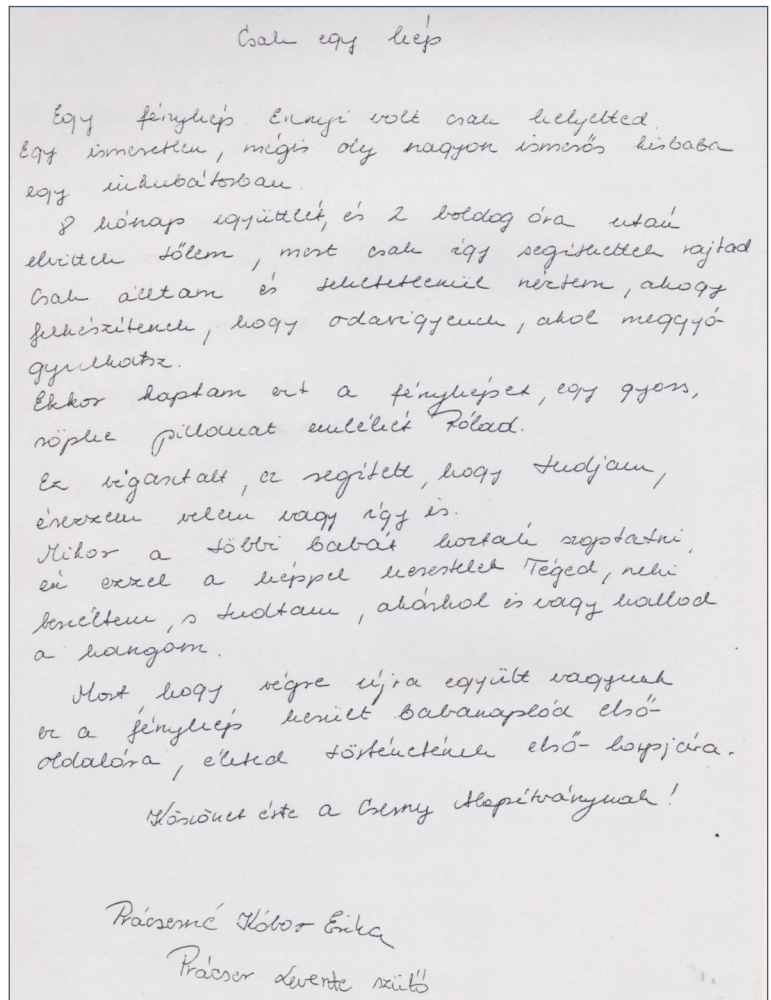 Csak egy kép
Egy fénykép. Ennyi volt csak helyetted.
Egy ismeretlen, mégis oly nagyon ismerős kisbaba
egy inkubátorban.
8 hónap együttlét, és 2 boldog óra után
elvittek tőlem, mert csak így segíthettek rajtad
Csak álltam és tehetetlenül néztem, ahogy
felkészítenek, hogy odavigyenek, ahol meggyó-
gyulhatsz.
Ekkor kaptam ezt a fényképet, egy gyors,
röpke pillanat emlékét Rólad.
Ez vígasztalt, ez segített, hogy tudjam,
érezzem velem vagy így is.
Mikor a többi babát hozták szoptatni,
én ezzel a képpel kerestelek Téged, neki
beszéltem, s tudtam, akárhol is vagy hallod
a hangom.
Most hogy végre újra együtt vagyunk
ez a fénykép került babanaplód első
oldalára, életed történetének első lapjára.
Köszönet érte a Cserny Alapítványnak!
Prácserné Kóbor Erika
Prácser Levente szülő